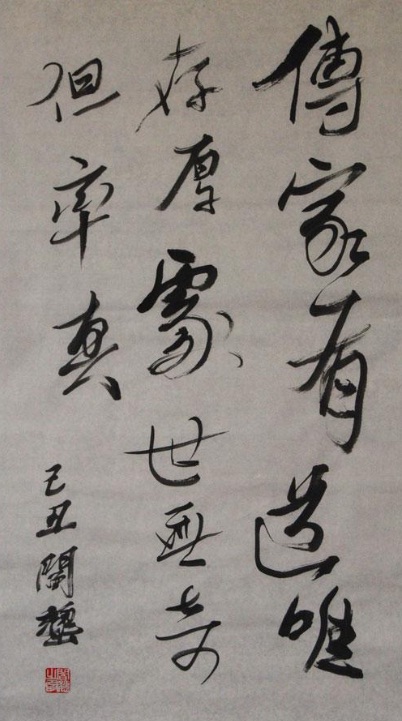 傳家有道唯
存厚處世無奇
但率真
己丑開